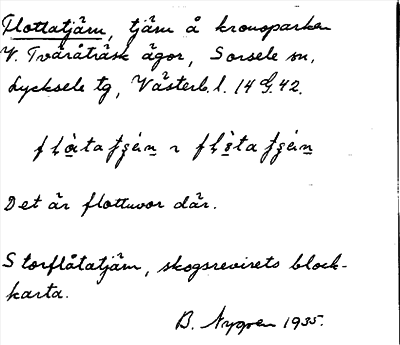 Flottatjärn, tjärn å kronoparken
V. Tvåråträsk ägor, Sorsele sn,
Lycksele tg, Västerb. l. 14 G. 42.
Det är flottuvor där.
Storflåtatjärn, skogsrevirets block-
karta.
B. Nygren 1935.